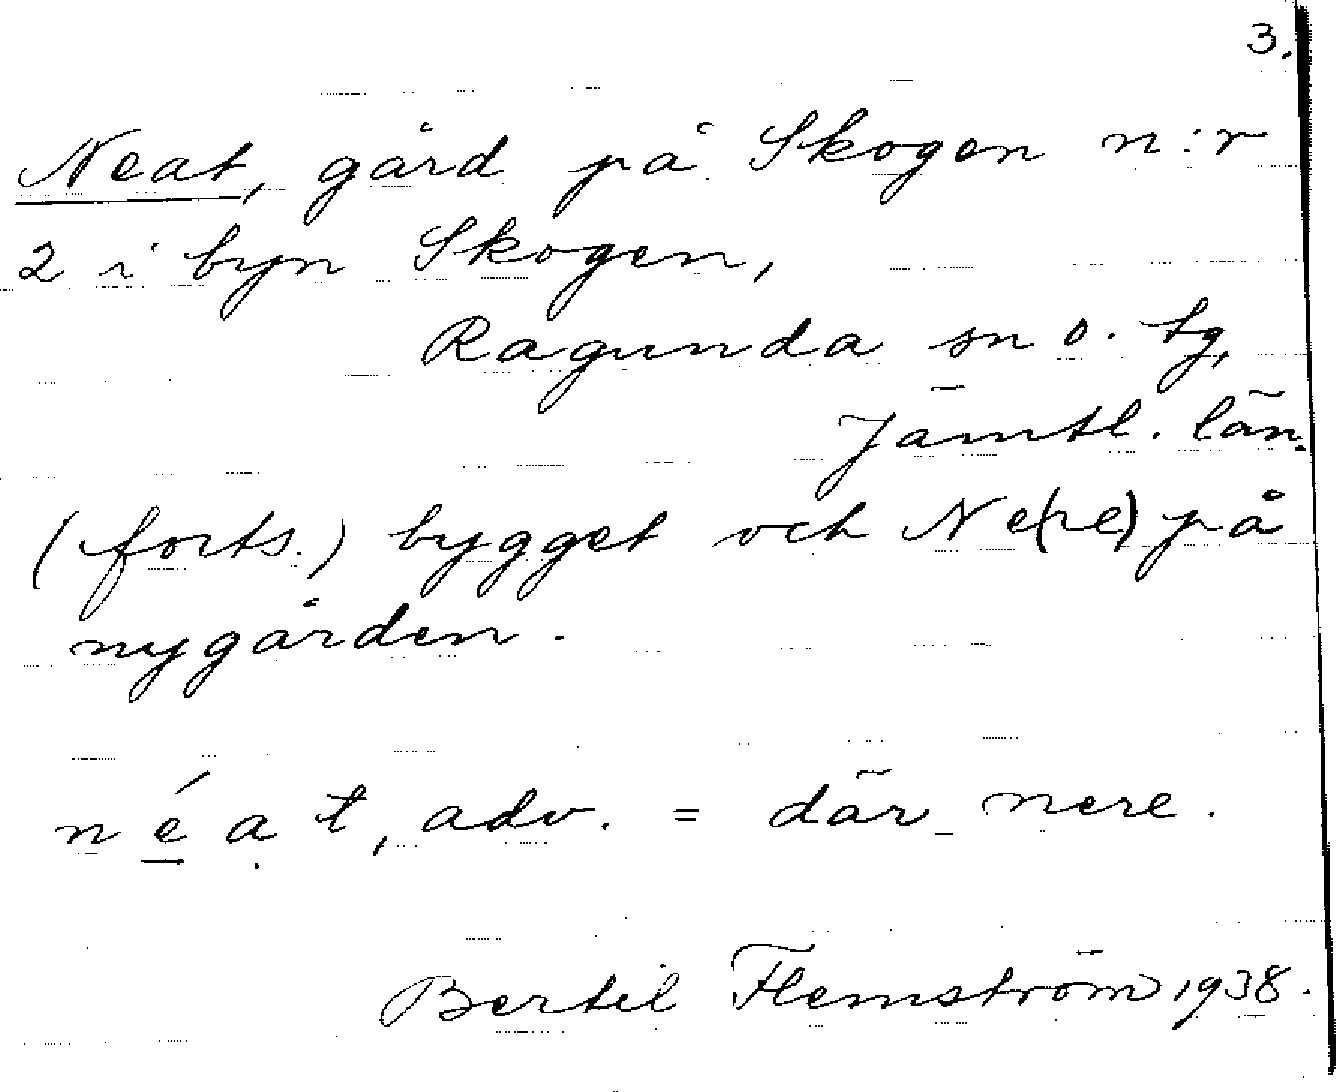 3.
Neat, gård på Skogen n:r
2 i byn Skogen,
Ragunda sn o. tg,
Jämtl. län.
(forts.) bygget och Ne(re) på
nygården.
néat, adv. = där nere.
Bertil Flemström 1938.